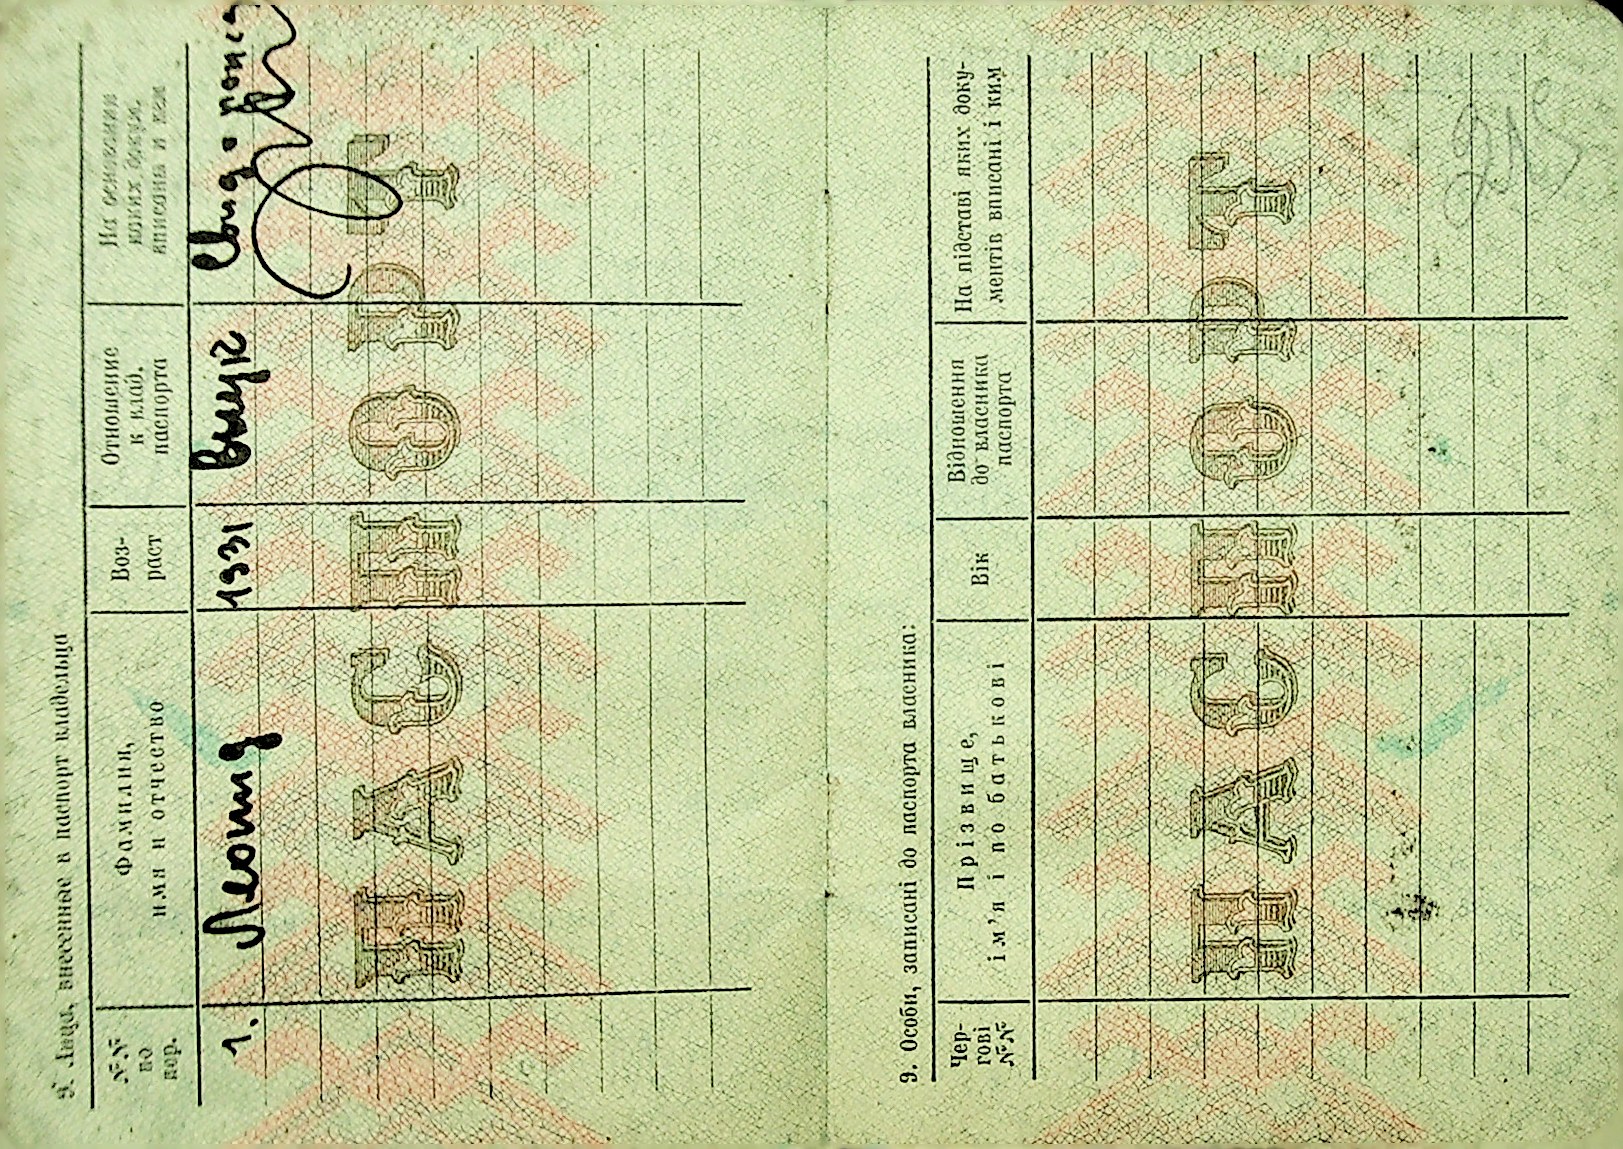 9. Лица, внесенные в паспорт владельца
№№
по
пор.
Фамилия,
имя и отчество
Воз-
раст
Отношение
к влад.
паспорта
На основании
каких докум.
вписаны и кем
1. Леонид 1931 внук Свид. о
ПАСПОРТ
9. Особи, записані до паспорта власника:
Чер-
гові
№№
Прізвище,
ім'я і по батькові
Вік
Відношення
до власника
паспорта
На підставі яких доку-
ментів вписані і ким
ПАСПОРТ